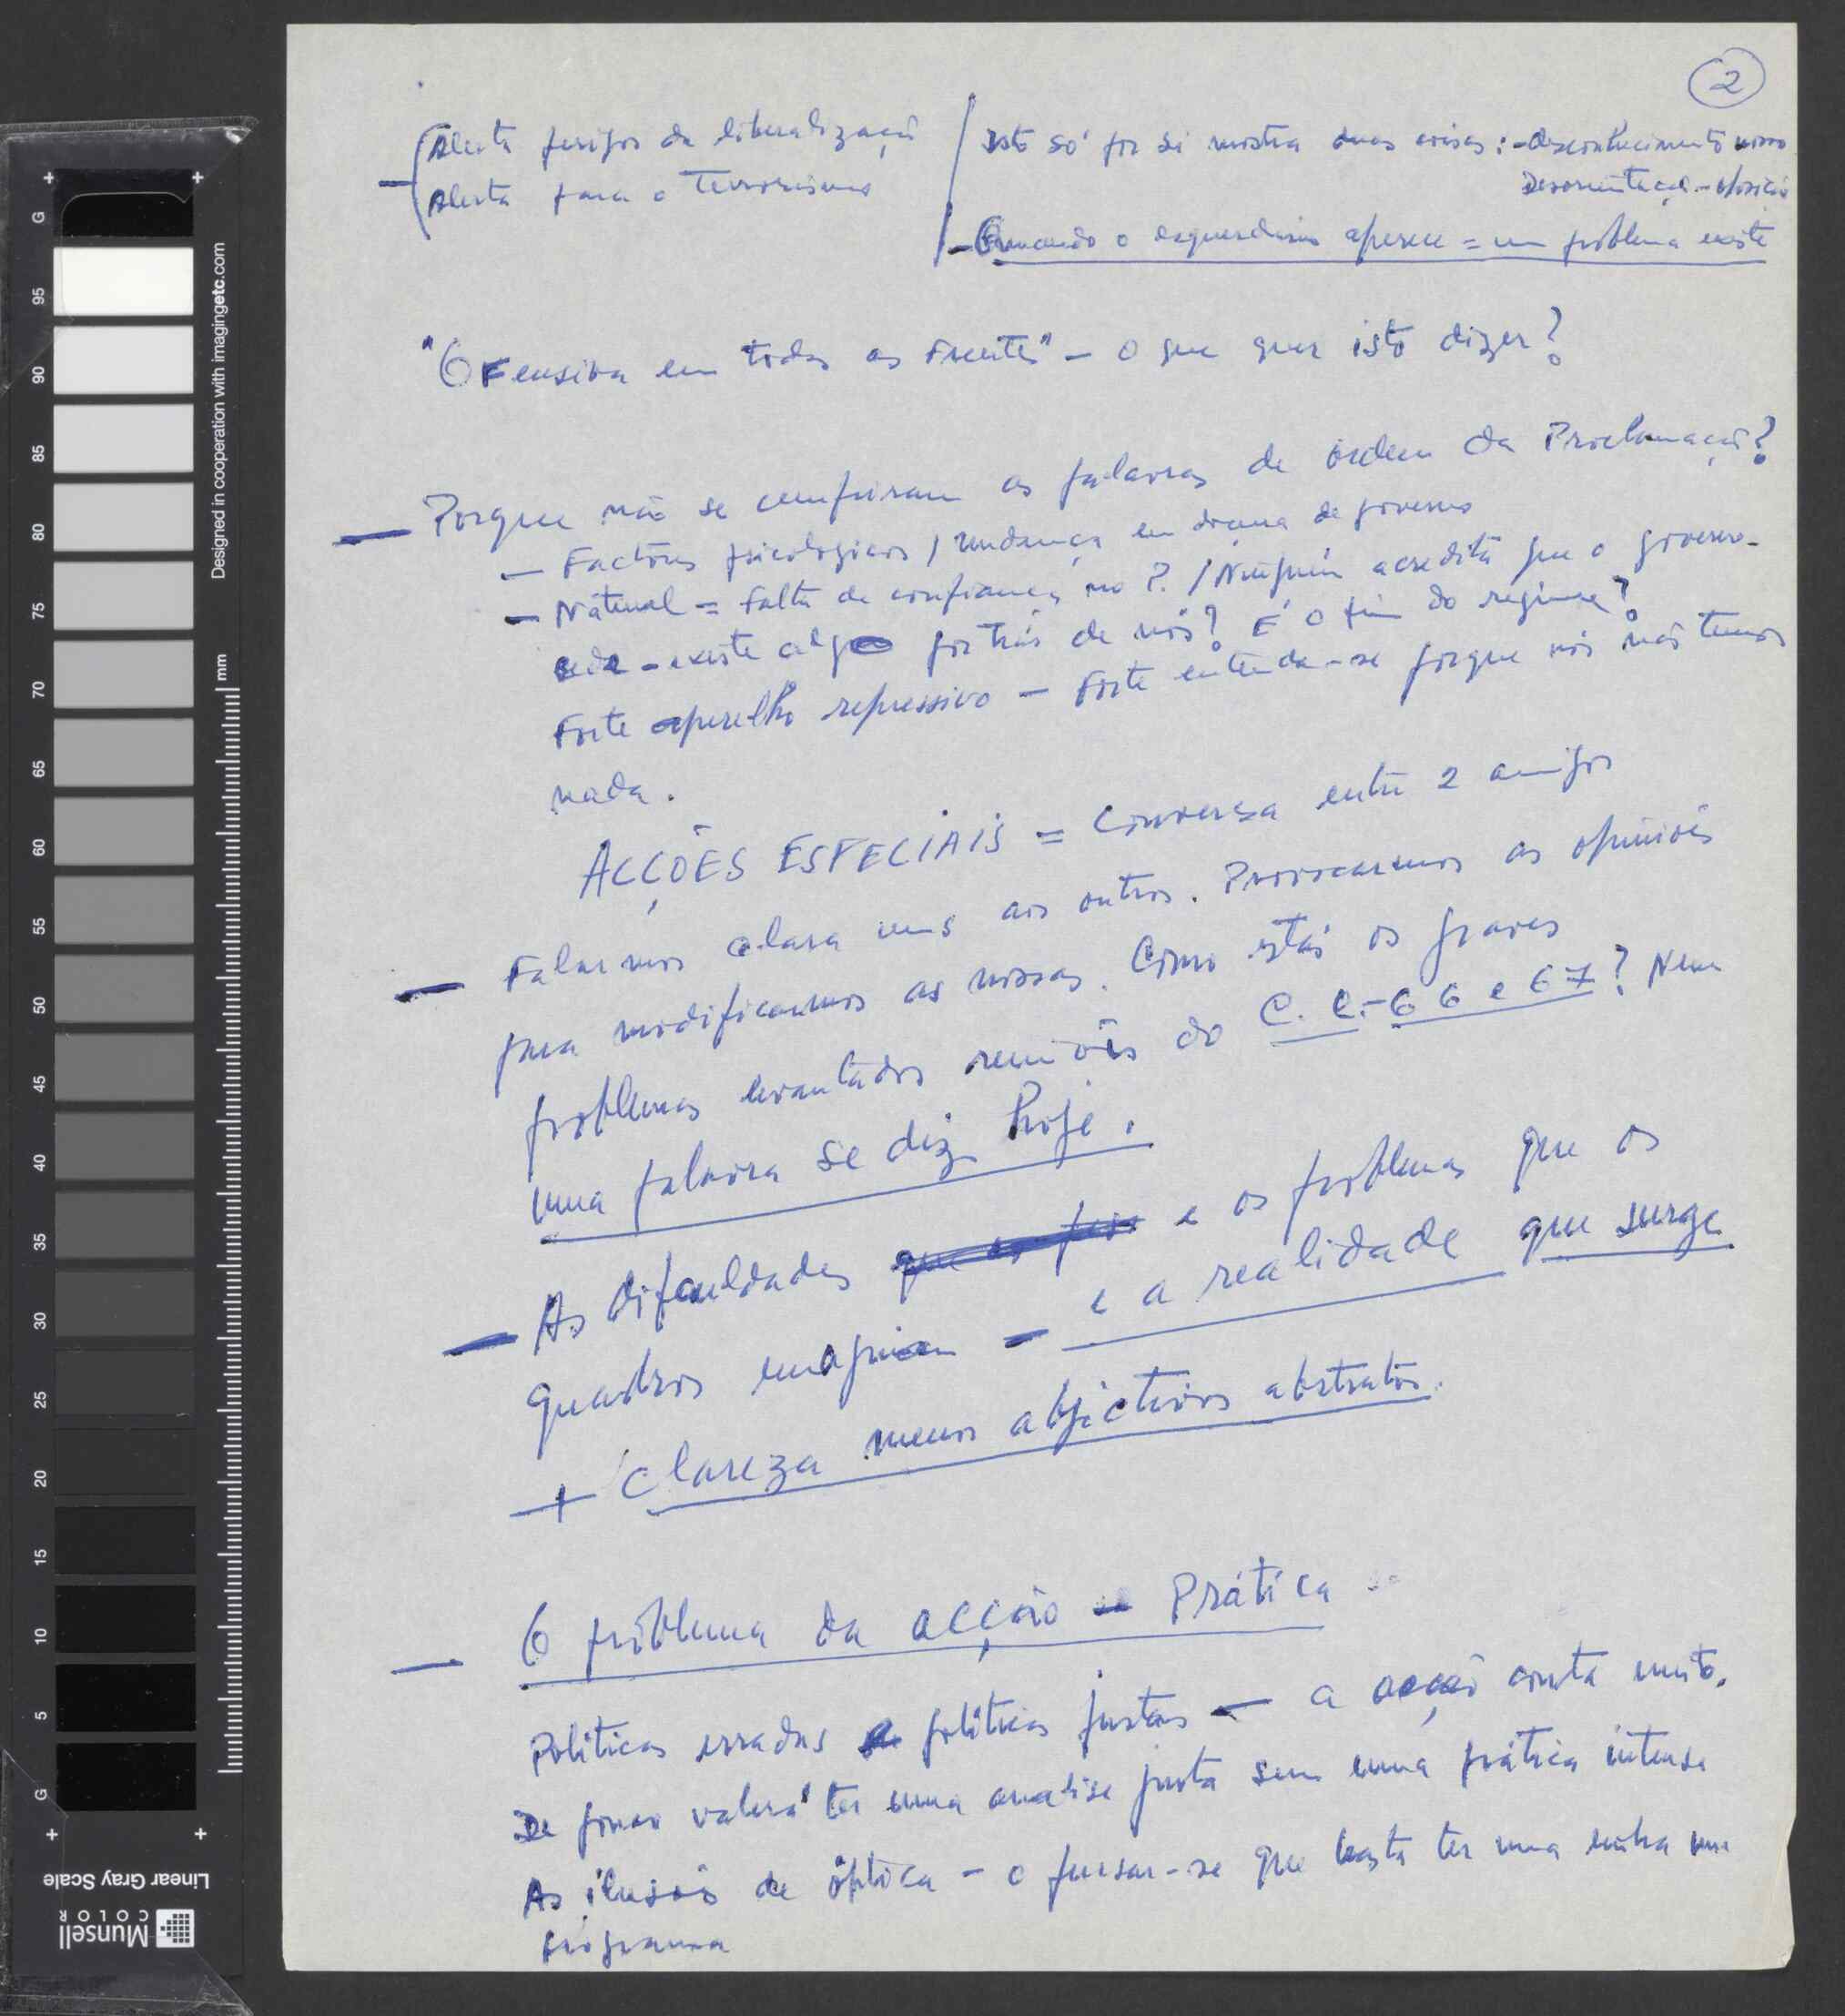 2
Alerta perigos da liberalização
Alerta para o Terrorismo
Isto só por si mostra duas coisas: - desconhecimento nosso
Desorientação - oposição
- Quando o esquerdismo aparece = um problema existe
"Ofensiva em todas as Frentes" - O que quer isto dizer?
— Porque não se cumpriram as palavras de ordem da Proclamação?
— Factores psicologicos / mudança em de governo
— Natural = Falta de confiança no P. / Ninguém acredita que o governo
ceda - existe algo por trás de nós? É o fim do regime?
Forte aparelho repressivo — Forte entenda-se porque nós não temos
nada.
ACÇÕES ESPECIAIS = Conversa entre 2 amigos
— Falarmos clara uns aos outros. Provocarmos as opiniões
para modificarmos as nossas. Como estão os graves
problemas levantados reuniões do C. C. - 66 e 67? Nem
uma palavra se diz hoje.
— As dificuldades e os problemas que os
quadros imaginam — e a realidade que surge
+ clareza menos abjectivos abstratos.
— O problema da acção — Prática
Politicas erradas politicas justas — a acção conta muito.
De pouco valerá ter uma analise justa sem uma prática intensa
As ilusões de óptica - o pensar-se que basta ter uma linha um
programa
G
95
90
85
80
75
70
65
60
55
50
45
40
35
30
25
20
15
10
5
G
mm
Designed in cooperation with imagingetc.com
Linear Gray Scale
Munsell
COLOR